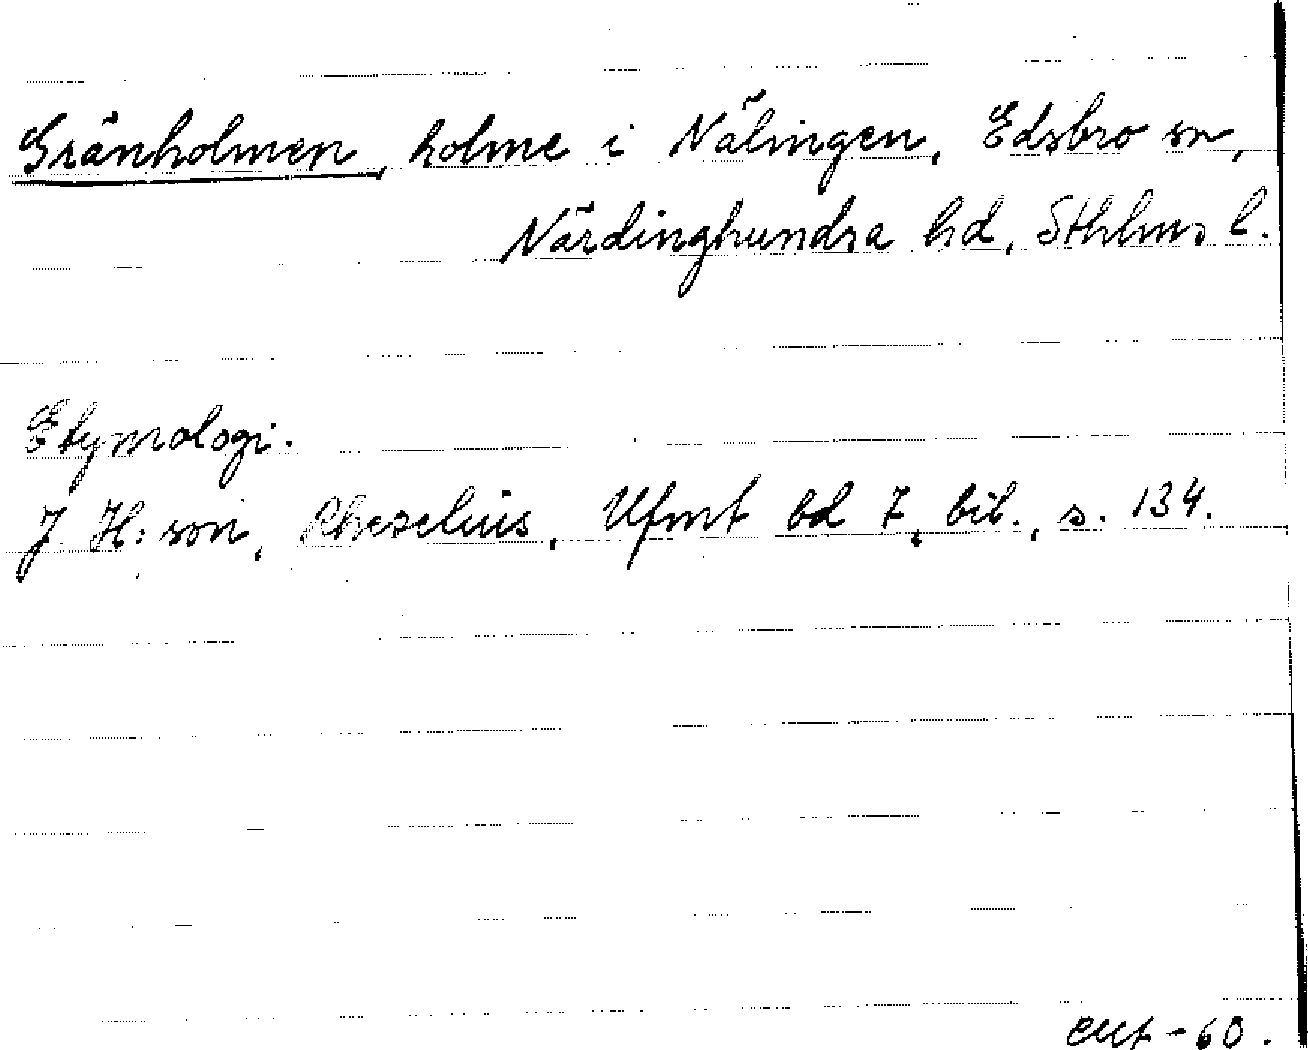 Gränholmen, holme i Nälingen, Edsbro sn,
Närdinghundra hd, Sthlms l.
Etymologi.
J. H:son, Rhezelius, Ufmt bd 7, bil., s. 134.
-60.